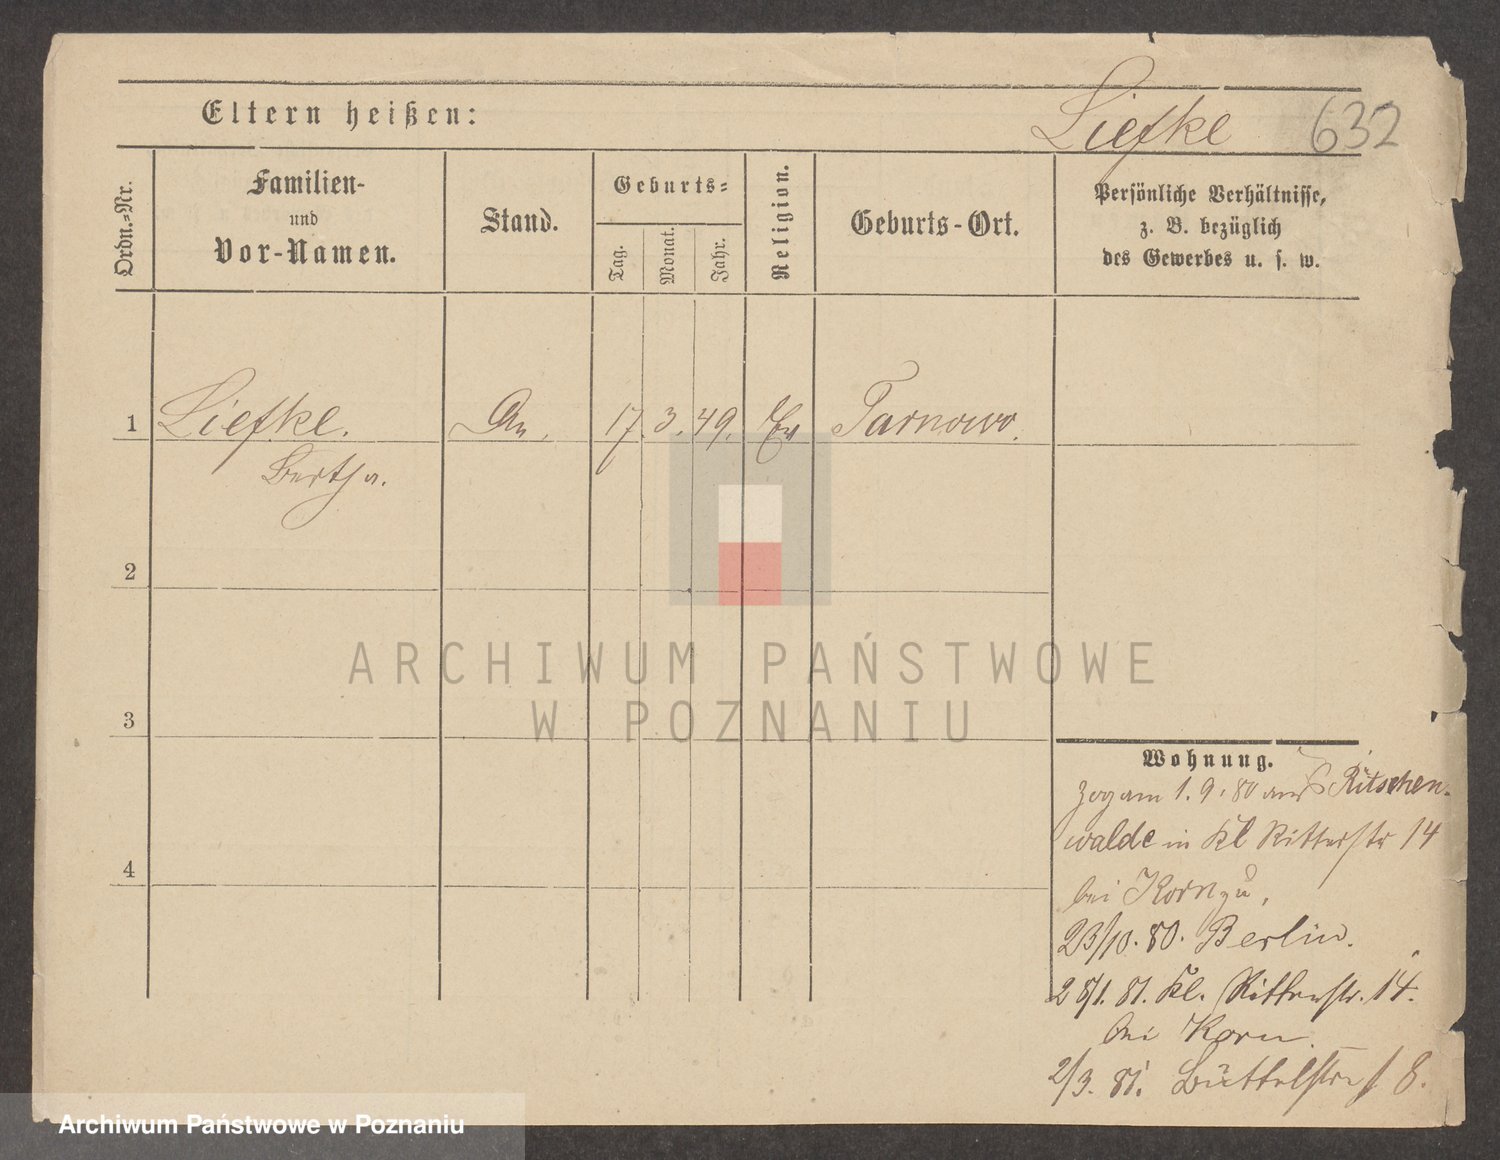 Eltern heißen:
Liefke 632
Ordn.=Nr.
Familien-
und
Vor-Namen.
Stand.
Geburts=
Tag.
Monat.
Jahr.
Religion.
Geburts-Ort.
Persönliche Verhältnisse,
z. B. bezüglich
des Gewerbes u. s. w.
1 Liefke. 17. 3. 49. Ev Tarnowo.
Bertha.
2
3
4
ARCHIWUM PAŃSTWOWE
W POZNANIU
Wohnung.
zog am 1. 9. 80 aus Ritschen-
walde in Kl Ritterstr 14
bei Korn zu,
23/10. 80. Berlin.
28/1. 81. Kl. Ritterstr. 14.
bei Korn.
2/3. 81. Büttelstr 8.
Archiwum Państwowe w Poznaniu